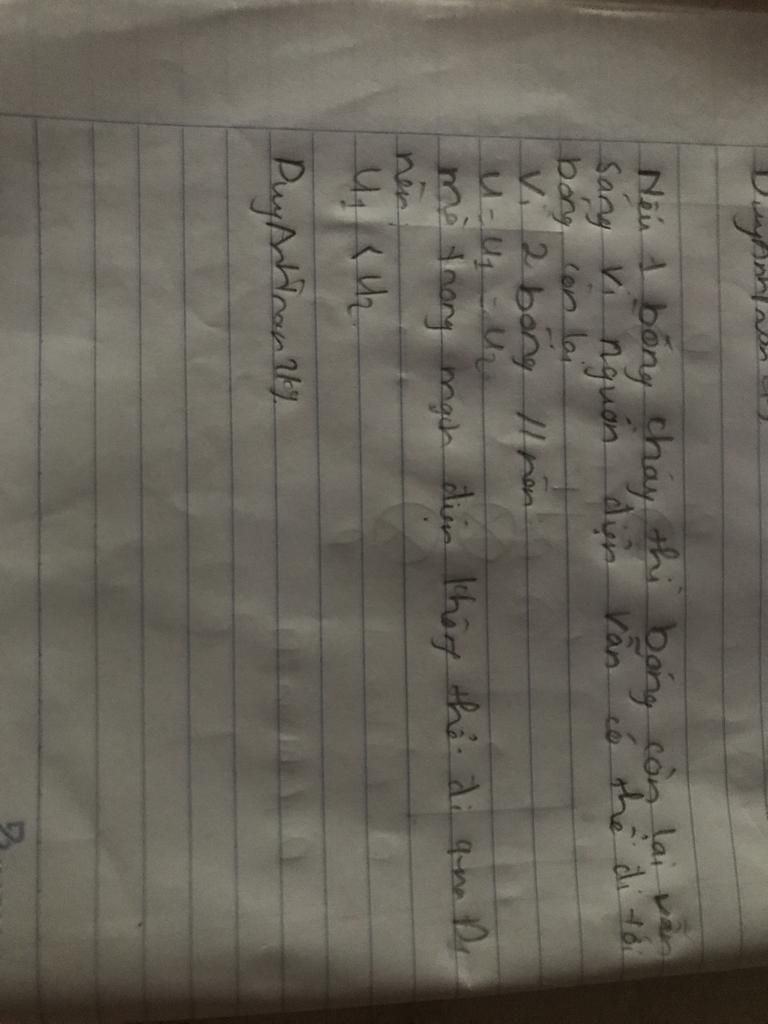 Nếu 1 bóng cháy thì bóng còn lại vẫn
sáng vì nguồn điện vẫn có thể đi tới
bóng còn lại
Vì 2 bóng // nên
U = U1 = U2
mà trong mạch điện không thể đi qua Đ1
nên
U1 < U2